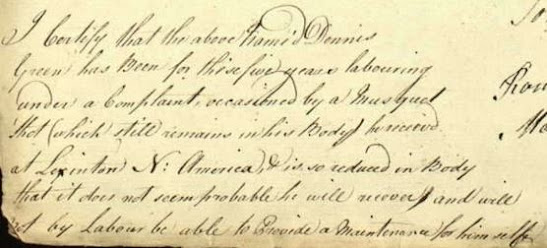 I Certify that the above Named Dennis
Green has Been for these five years labouring
under a Complaint, occasioned by a Musquet
Shot (which still remains in his Body) he recieved
at Lexinton N: America, & is so reduced in Body
that it does not seem probable he will recover, and will
not by Labour be able to Provide a Maintenance for him self